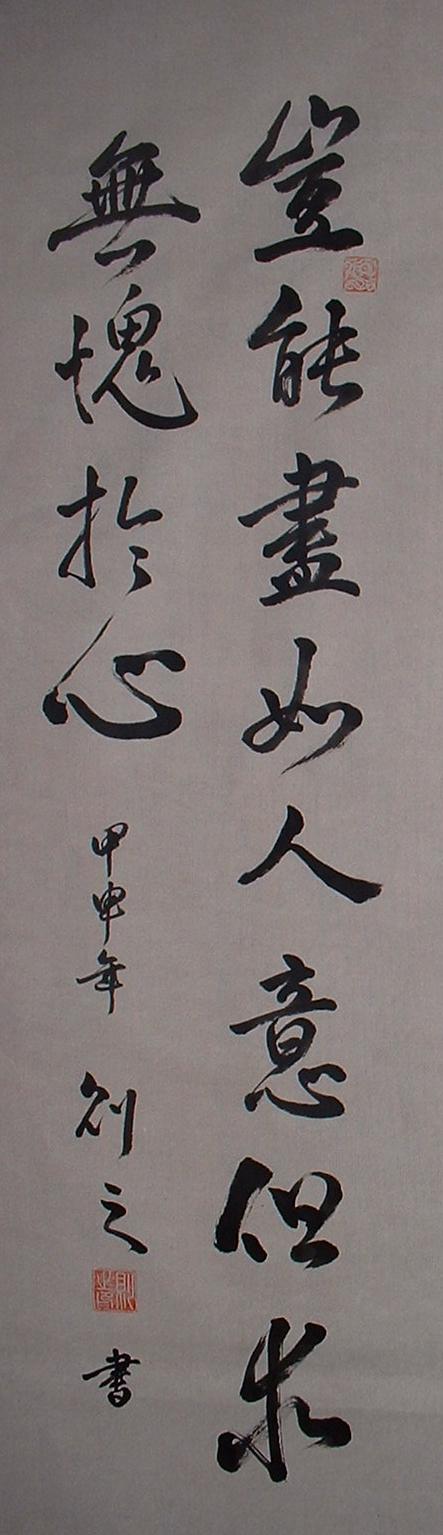 豈能盡如人意但求
無愧於心
甲申年 則之 書